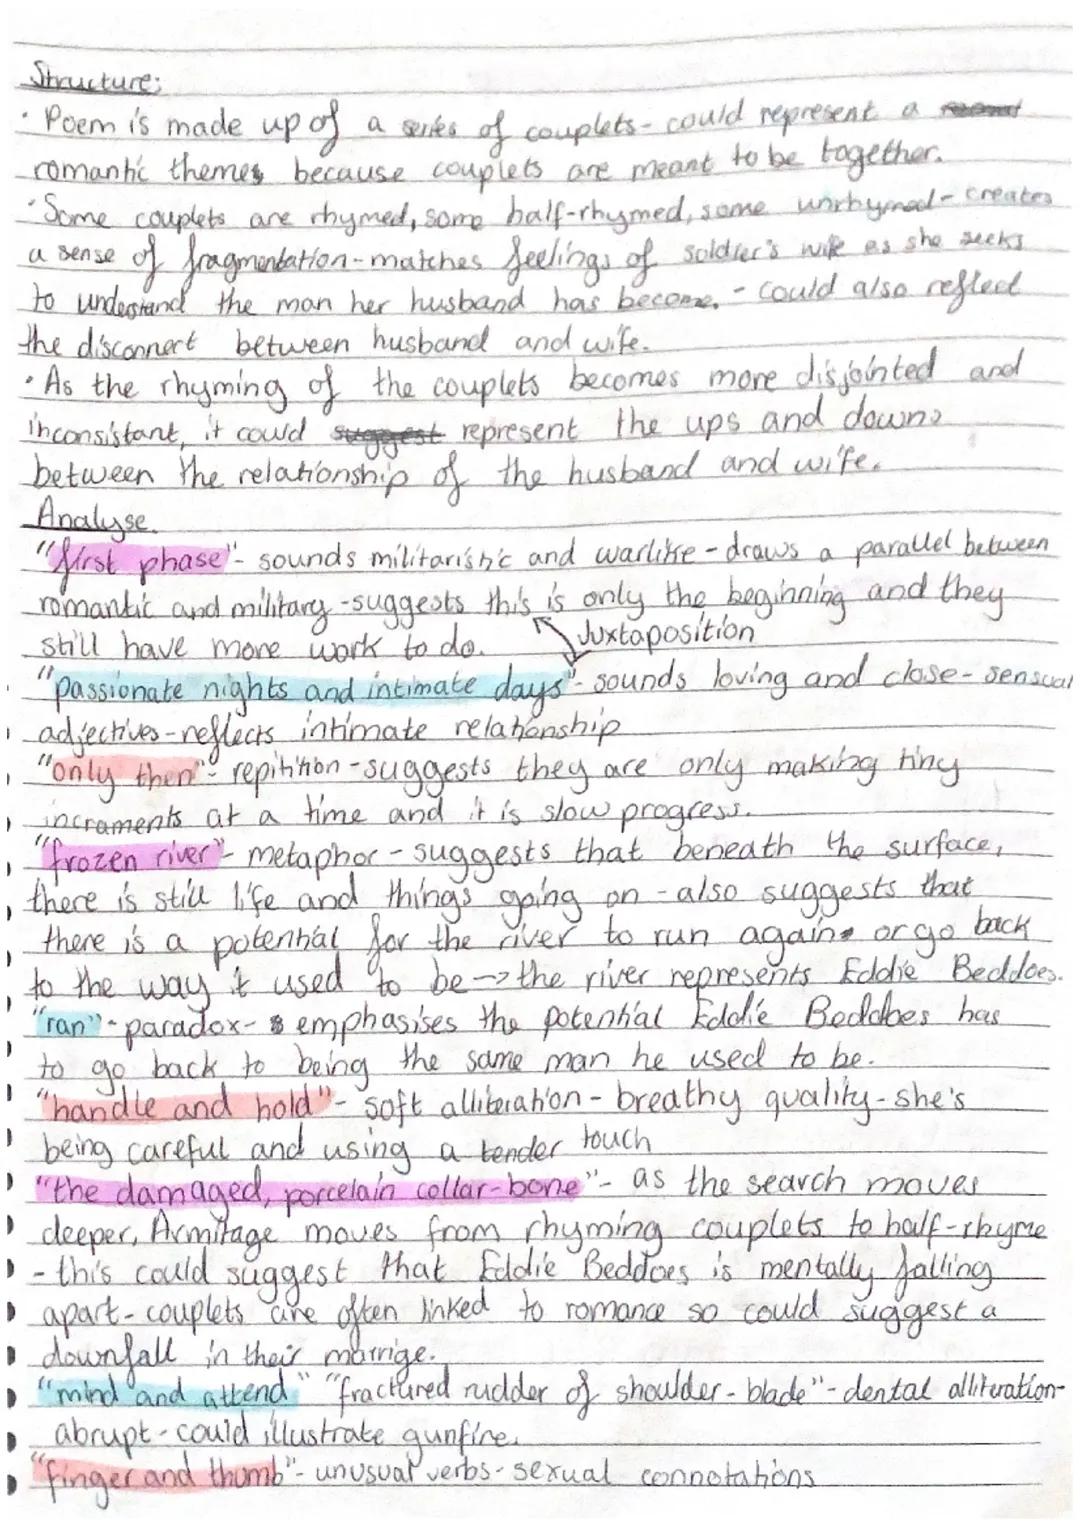 Structure:
· Poem is made up of a series of couplets - could represent a
romantic themes because couplets are meant to be together.
· Some couplets are rhymed, some half-rhymed, some unrhymed - creates
a sense of fragmentation - matches feelings of soldier's wife as she seeks
to understand the man her husband has become. - could also reflect
the disconnect between husband and wife.
· As the rhyming of the couplets becomes more disjointed and
inconsistant, it could suggest represent the ups and downs
between the relationship of the husband and wife.
Analyse.
"first phase" - sounds militaristic and warlike - draws a parallel between
romantic and military - suggests this is only the beginning and they
still have more work to do. Juxtaposition
"passionate nights and intimate days" - sounds loving and close - sensual
adjectives - reflects intimate relationship
"only then" - repitition - suggests they are only making tiny
incraments at a time and it is slow progress.
"frozen river" - metaphor - suggests that beneath the surface,
there is still life and things going on - also suggests that
there is a potential for the river to run again or go back
to the way it used to be -> the river represents Eddie Beddoes.
"ran" - paradox - emphasises the potential Eddie Beddoes has
to go back to being the same man he used to be.
"handle and hold" - soft alliteration - breathy quality - she's
being careful and using a tender touch
"the damaged, porcelain collar-bone" - as the search moves
deeper, Armitage moves from rhyming couplets to half-rhyme
- this could suggest that Eddie Beddoes is mentally falling
apart - couplets are often linked to romance so could suggest a
downfall in their marrige.
"mind and attend" "fractured rudder of shoulder-blade" - dental alliteration -
abrupt - could illustrate gunfire.
"finger and thumb" - unusual verbs - sexual connotations